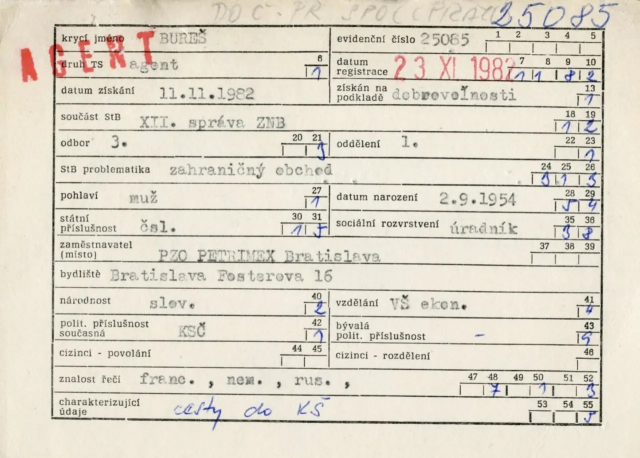 DOČ. PR SPOLUPRÁCI 25085
krycí jméno BUREŠ evidenční číslo 25085 1 2 3 4 5
AGENT
druh TS agent 6 1 datum registrace 23 XI. 1982 7 8 9 10 1 1 8 2
datum získání 11.11.1982 získán na podkladě dobrovoľnosti 13 1
součást StB XII. správa ZNB 18 19 1 2
odbor 3. 20 21 3 oddělení 1. 22 23 1
StB problematika zahraničný obchod 24 25 26 3 1 3
pohlaví muž 27 1 datum narození 2.9.1954 28 29 5 4
státní příslušnost čsl. 30 31 1 5 sociální rozvrstvení úradník 35 36 3 8
zaměstnavatel (místo) PZO PETRIMEX Bratislava 37 38 39
bydliště Bratislava Fosterova 16
národnost slov. 40 2 vzdělání VŠ ekon. 41 4
polit. příslušnost současná KSČ 42 1 bývalá polit. příslušnost - 43 9
cizinci - povolání 44 45 cizinci - rozdělení 46
znalost řečí franc., nem., rus., 47 48 49 50 51 52 7 1 3
charakterizující údaje cesty do KŠ 53 54 55 5